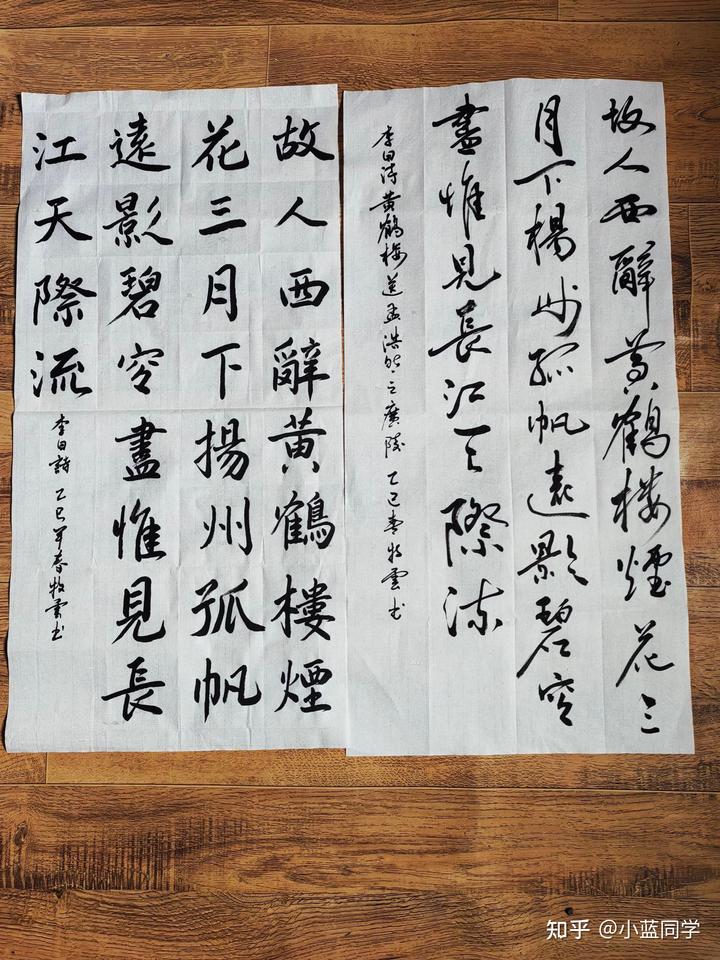 故人西辭黄鶴樓煙花三
月下楊州孤帆遠影碧空
盡惟見長江天際流
李白詩黄鶴樓送孟浩然之廣陵 乙巳春牧雲书
故人西辭黄鶴樓煙
花三月下揚州孤帆
遠影碧空盡惟見長
江天際流
李白詩 乙巳年春牧雲书
知乎 @小蓝同学